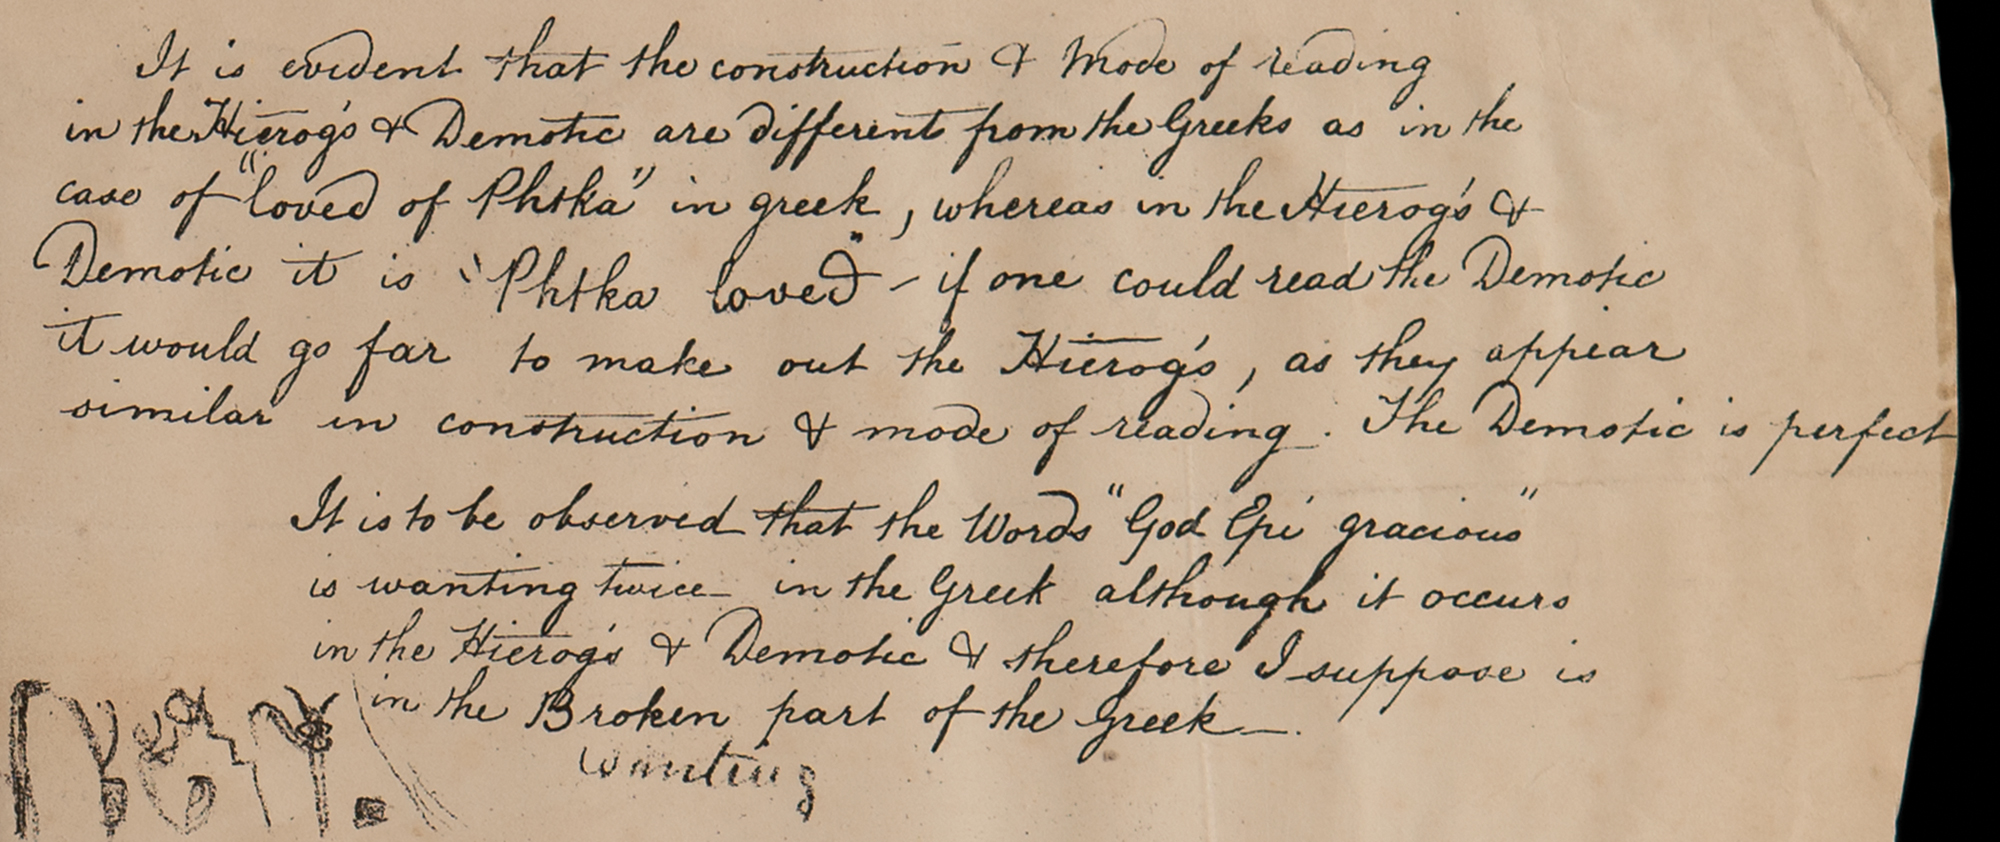 It is evident that the construction & Mode of reading
in the Hierog's & Demotic are different from the Greeks as in the
case of "loved of Phtka" in greek, whereas in the Hierog's &
Demotic it is "Phtka loved" - if one could read the Demotic
it would go far to make out the Hierog's, as they appear
similar in construction & mode of reading. The Demotic is perfect
It is to be observed that the Words "God Epi gracious"
is wanting twice in the Greek although it occurs
in the Hierog's & Demotic & therefore I suppose is
in the Broken part of the Greek —.
wanting